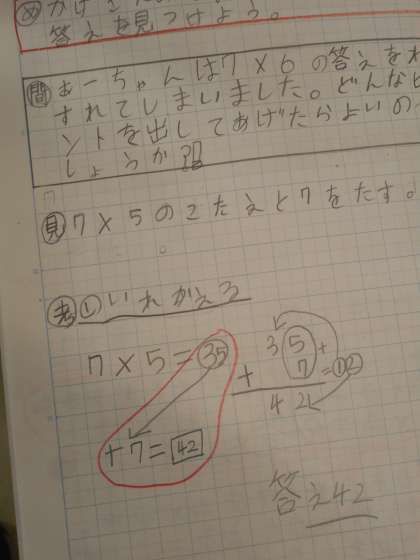 め かけ
答えを見つけよう。
問 あーちゃんは7×6の答えをわ
すれてしまいました。どんなヒ
ントを出してあげたらよいので
しょうか?
見 7×5のこたえと7をたす。
考 ① いれかえろ
7×5=35
+7=42
35
+ 7
42
+
=12
答え42